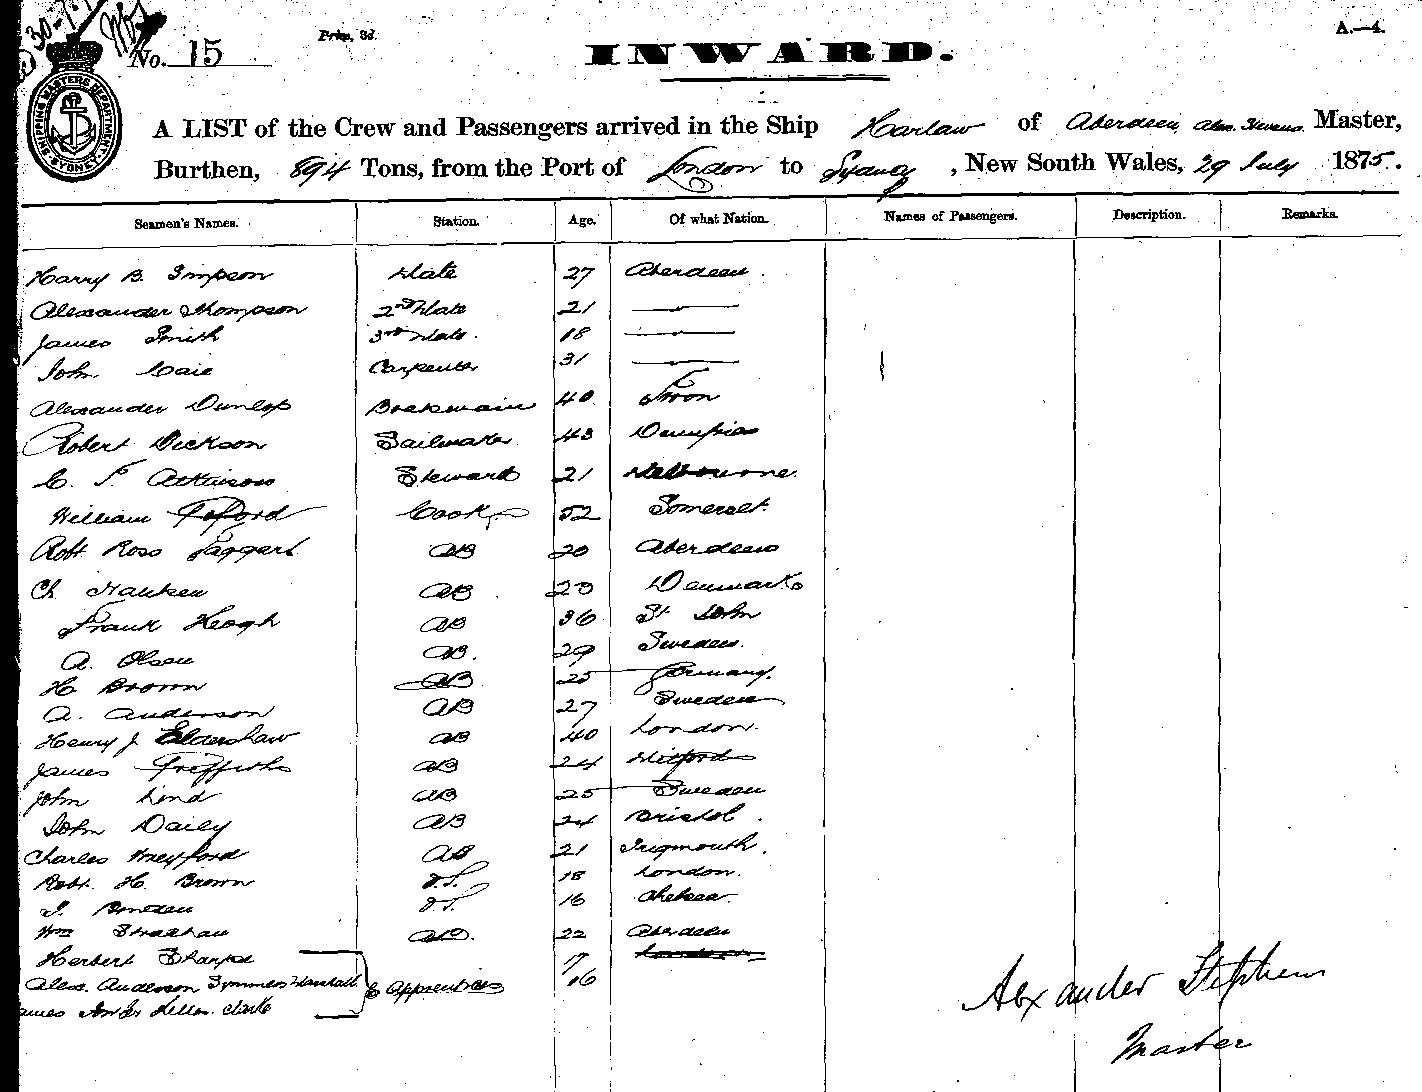 No. 15
Price, 3d.
A.—4.
INWARD.
SHIPPING MASTERS DEPARTMENT. SYDNEY
A LIST of the Crew and Passengers arrived in the Ship Harlaw of Aberdeen, Alex. Stevens. Master,
Burthen, 894 Tons, from the Port of London to Sydney, New South Wales, 29 July 1875.
Seamen's Names. Station. Age. Of what Nation. Names of Passengers. Description. Remarks.
Harry B. Simpson Mate 27 Aberdeen.
Alexander Thompson 2nd Mate 21 ———
James Smith 3rd Mate. 18 ———
John Caie Carpenter 31 ———
Alexander Dunlop Boatswain 40 Troon
Robert Dickson Sailmaker 43 Dumfries
C. F. Atkinson Steward 21 Melbourne.
William Cook 52 Somerset.
Robt Ross Taggert AB 20 Aberdeen
Ch Hansen AB 23 Denmark
Frank Keogh AB 36 St John
A. Olsen AB. 29 Sweden.
H. Brown AB 25 Germany.
A. Anderson AB 27 Sweden
Henry J. Eldershaw AB 40 London.
James Griffiths AB 24 Milford
John Lind AB 25 Sweden
John Daily AB 24 Bristol.
Charles Wreyford AB 21 Teignmouth.
Robt. H. Brown O.S. 18 London.
O.S. 16 Chelsea.
Wm Strachan AB. 22 Aberdeen
Herbert Sharpe 17 London
Alex. Anderson Symmers Marshall Apprentices 16
James Clarke
Alexander Stephen
Master